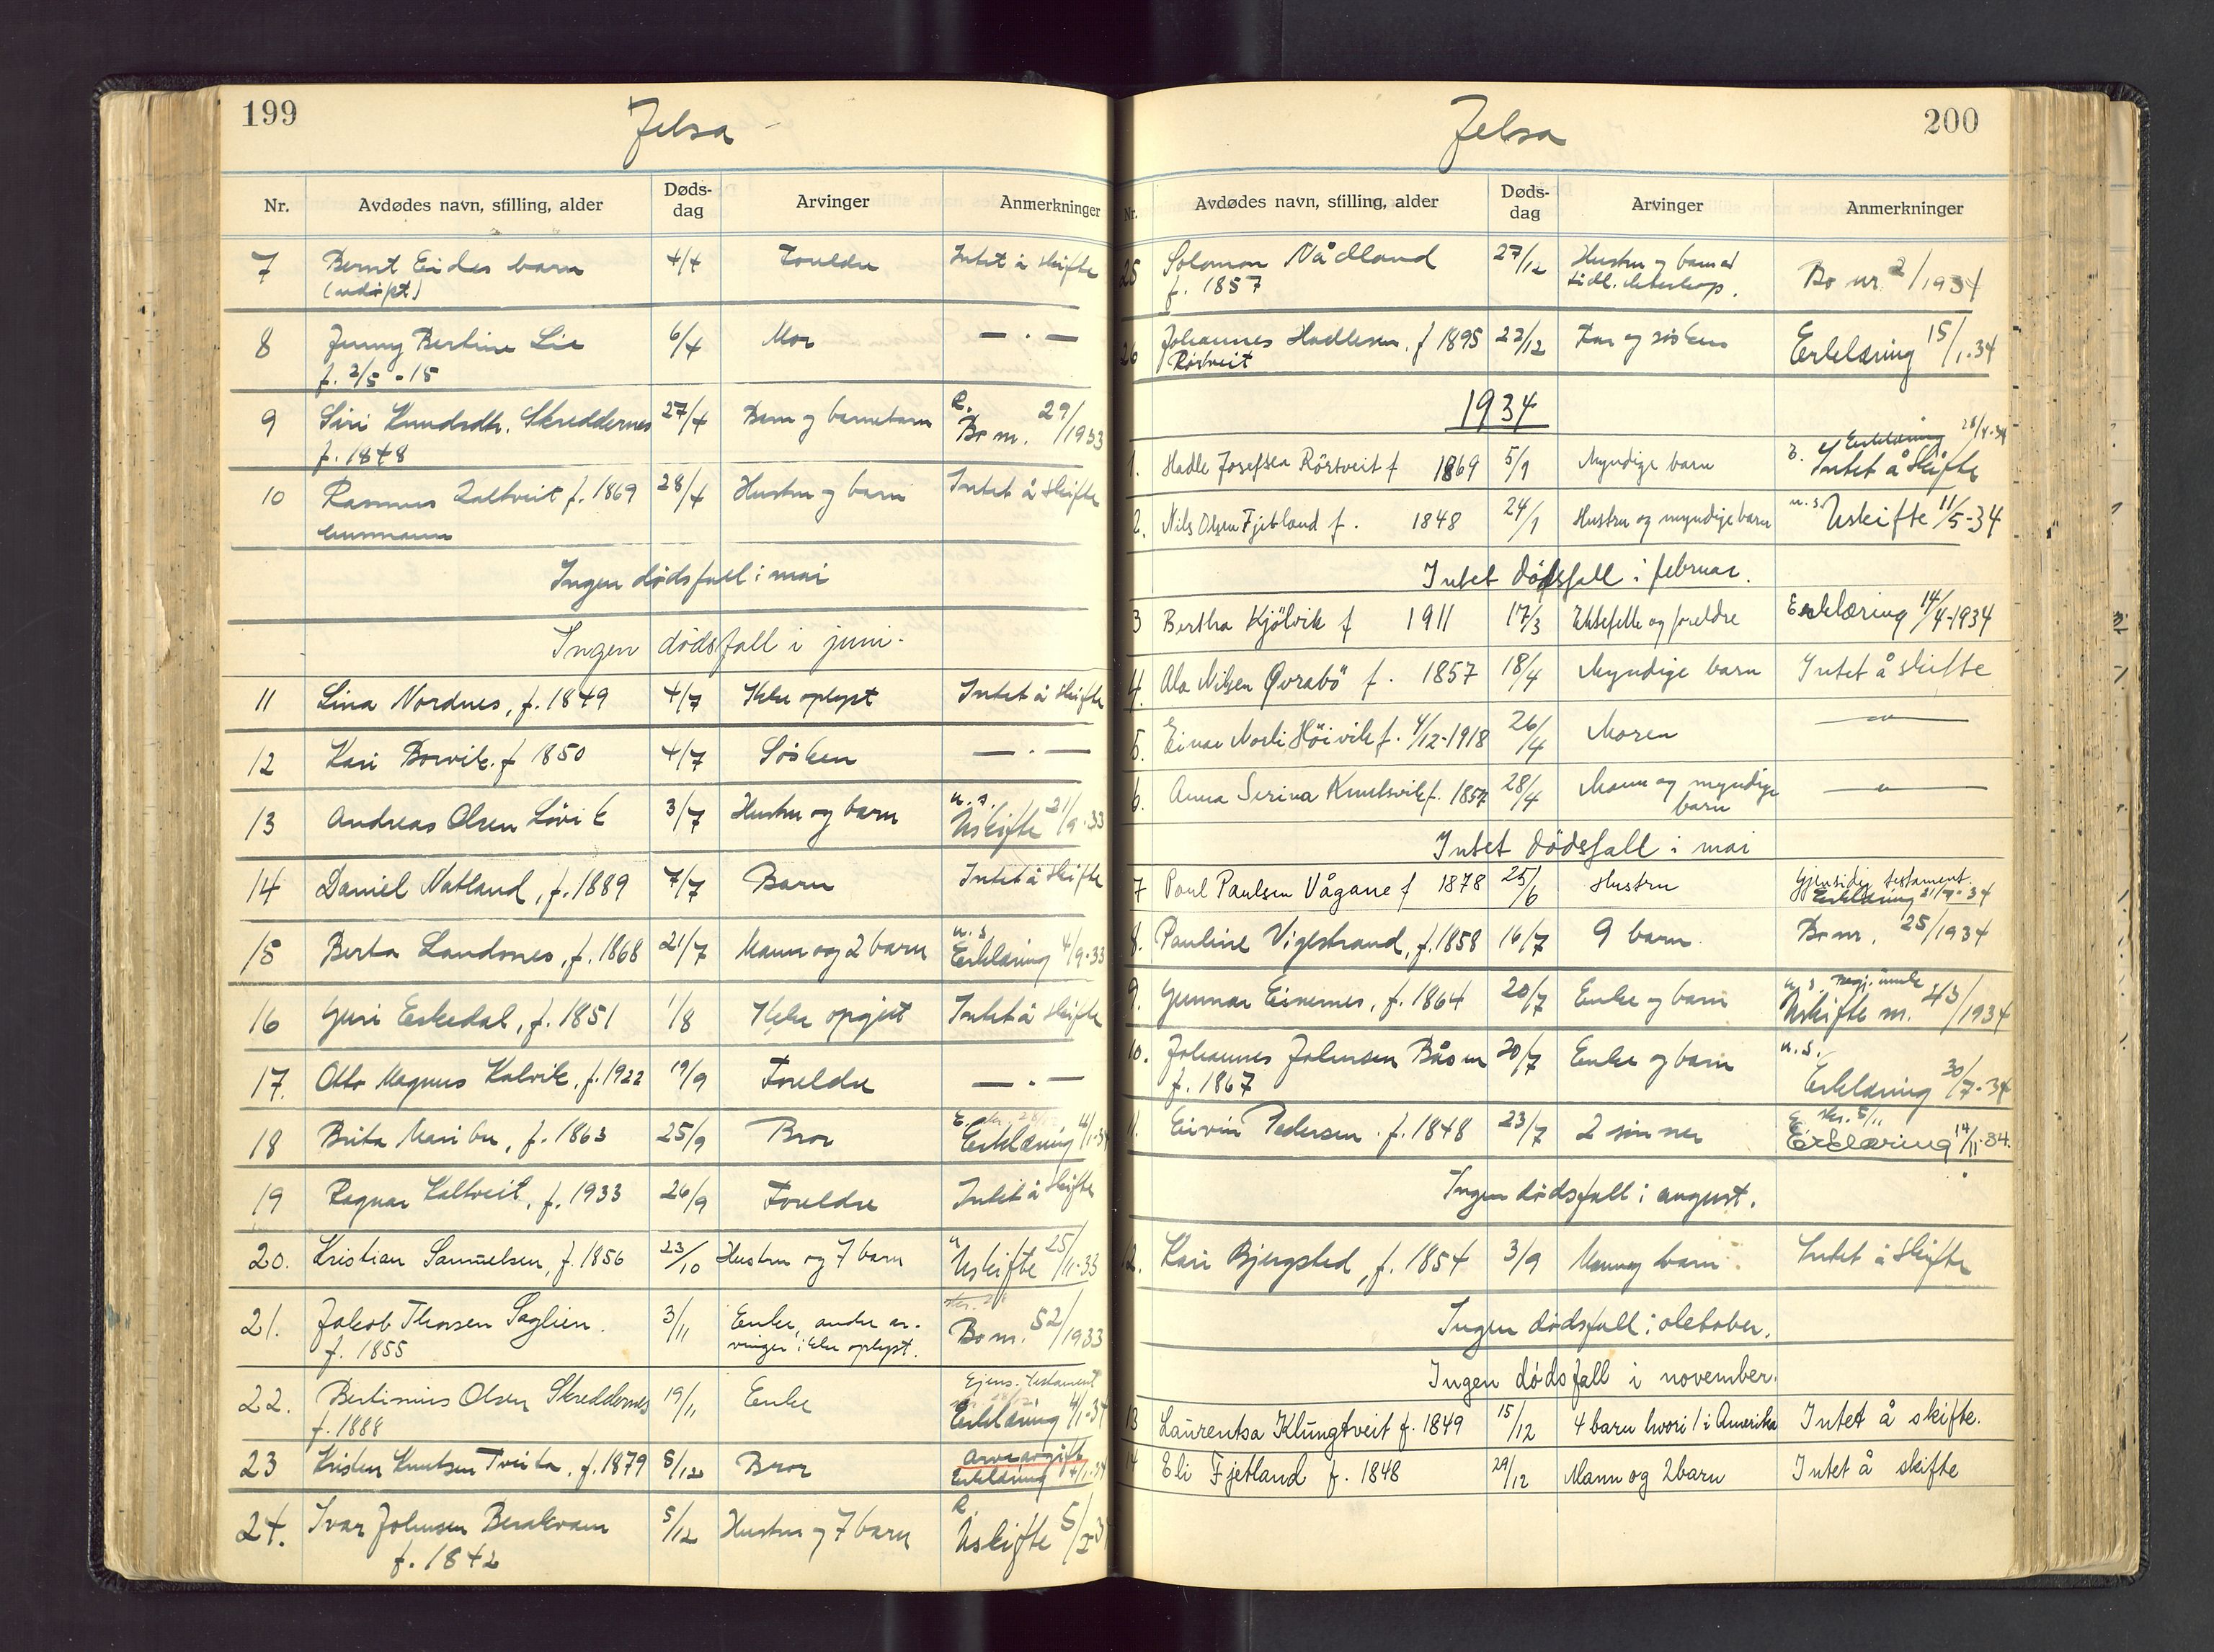 199
Jelsa
Nr. Avdødes navn, stilling, alder Døds-dag Arvinger Anmerkninger
7 Bernt Eides barn 4/4 Foreldre Intet å skifte
(udøpt)
8 Jenny Bertine Lie 6/4 Mor — · —
f. 2/5 - 15
9 Siri Knudsdtr. Skreddernes 27/4 Barn og barnebarn R. Bo nr. 29/1933
f. 1848
10 Rasmus Kaltveit f. 1869 28/4 Hustru og barn Intet å skifte
Ingen dødsfall i mai
Ingen dødsfall i juni.
11 Lina Nordnes, f. 1849 4/7 Ikke oplyst Intet å skifte
12 Kari Borvik f 1850 4/7 Søsken — · —
13 Andreas Olsen Løvik 3/7 Hustru og barn u. s. Uskifte 21/9-33
14 Daniel Natland, f. 1889 7/7 Barn Intet å skifte
15 Berta Landsnes, f. 1868 21/7 Mann og 2 barn u. s Erklæring 4/9-33
16 Guri Eskedal, f. 1851 1/8 Ikke opgitt Intet å skifte
17. Otto Magnus Kalvik, f. 1922 19/9 Foreldre — · —
18 Brita Maribu, f. 1863 25/9 Bror Erklæring
19 Ragnar Kaltveit, f. 1933 26/9 Foreldre Intet å skifte
20. Kristian Samuelsen, f. 1856 23/10 Hustru og 7 barn u Uskifte 25/11-33
21. Jakob Thorsen Saglien. 3/11 Enke, andre ar- Bo nr. 52/1933
f. 1855 vinger ikke oplyst.
22. Bertinius Olsen Skreddernes 19/11 Enke Gjens. testament
f. 1888 Erklæring 4/1-34
23 Kristen Knutsen Tveita, f. 1879 5/12 Bror Arveavgift
Erklæring 4/1-34
24. Ivar Johnsen Berakvam 5/12 Hustru og 7 barn R. Uskifte
f. 1842
200
Jelsa
Nr. Avdødes navn, stilling, alder Døds-dag Arvinger Anmerkninger
25 Solomon Nådland 27/12 Hustru og barn av Bo nr. 2/1934
f. 1857 tidl. ekteskap.
26 Johannes Hadlesen, f 1895 23/12 Far og søsken Erklæring 15/1-34
Røstveit
1934
1. Hadle Josefsen Rørtveit f 1869 5/1 Myndige barn Erklæring 28/4-34
Intet å skifte
2. Nils Olsen Fjetland f. 1848 24/1 Hustru og myndige barn u. s. Uskifte 11/5-34
Intet dødsfall i februar.
3 Bertha Kjölvik f 1911 17/3 Ektefelle og foreldre Erklæring 14/4-1934
4. Ola Nilsen Øvrabö f. 1857 18/4 Myndige barn Intet å skifte
5. Einar Norli Höivik f. 4/12-1918 26/4 Moren —"—
6. Anna Serina Knutsvik f. 1857 28/4 Mann og myndige barn —"—
Intet dødsfall i mai
7 Poul Paulsen Vågane f 1878 25/6 Hustru Gjensidig testament.
Erklæring 21/7-34
8. Pauline Vigestrand, f. 1858 16/7 9 barn Bo nr. 25/1934
9. Gunnar Eirenes, f. 1864 20/7 Enke og barn Uskifte nr. 43/1934
10. Johannes Johnsen Båsen 20/7 Enke og barn u. s.
f. 1867 Erklæring 30/7-34
11. Eivin Pedersen f. 1848 23/7 2 sønner Erklæring 14/11-34.
Ingen dødsfall i august.
12. Kari Bjergsted, f. 1854 3/9 Mann og barn Intet å skifte
Ingen dødsfall i oktober.
Ingen dødsfall i november.
13 Laurentsa Klungtveit f. 1849 15/12 4 barn hvori 1 i Amerika Intet å skifte.
14 Eli Fjetland f. 1848 29/12 Mann og 2 barn Intet å skifte